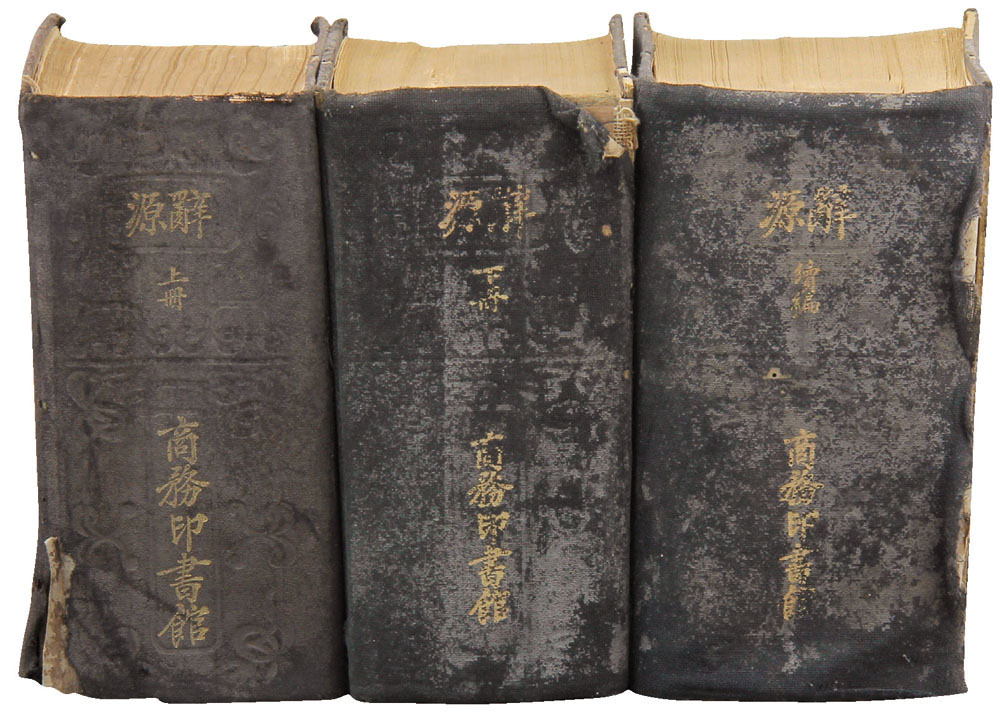 辭源
上冊
商務印書館
辭源
下冊
商務印書館
辭源
續編
商務印書館